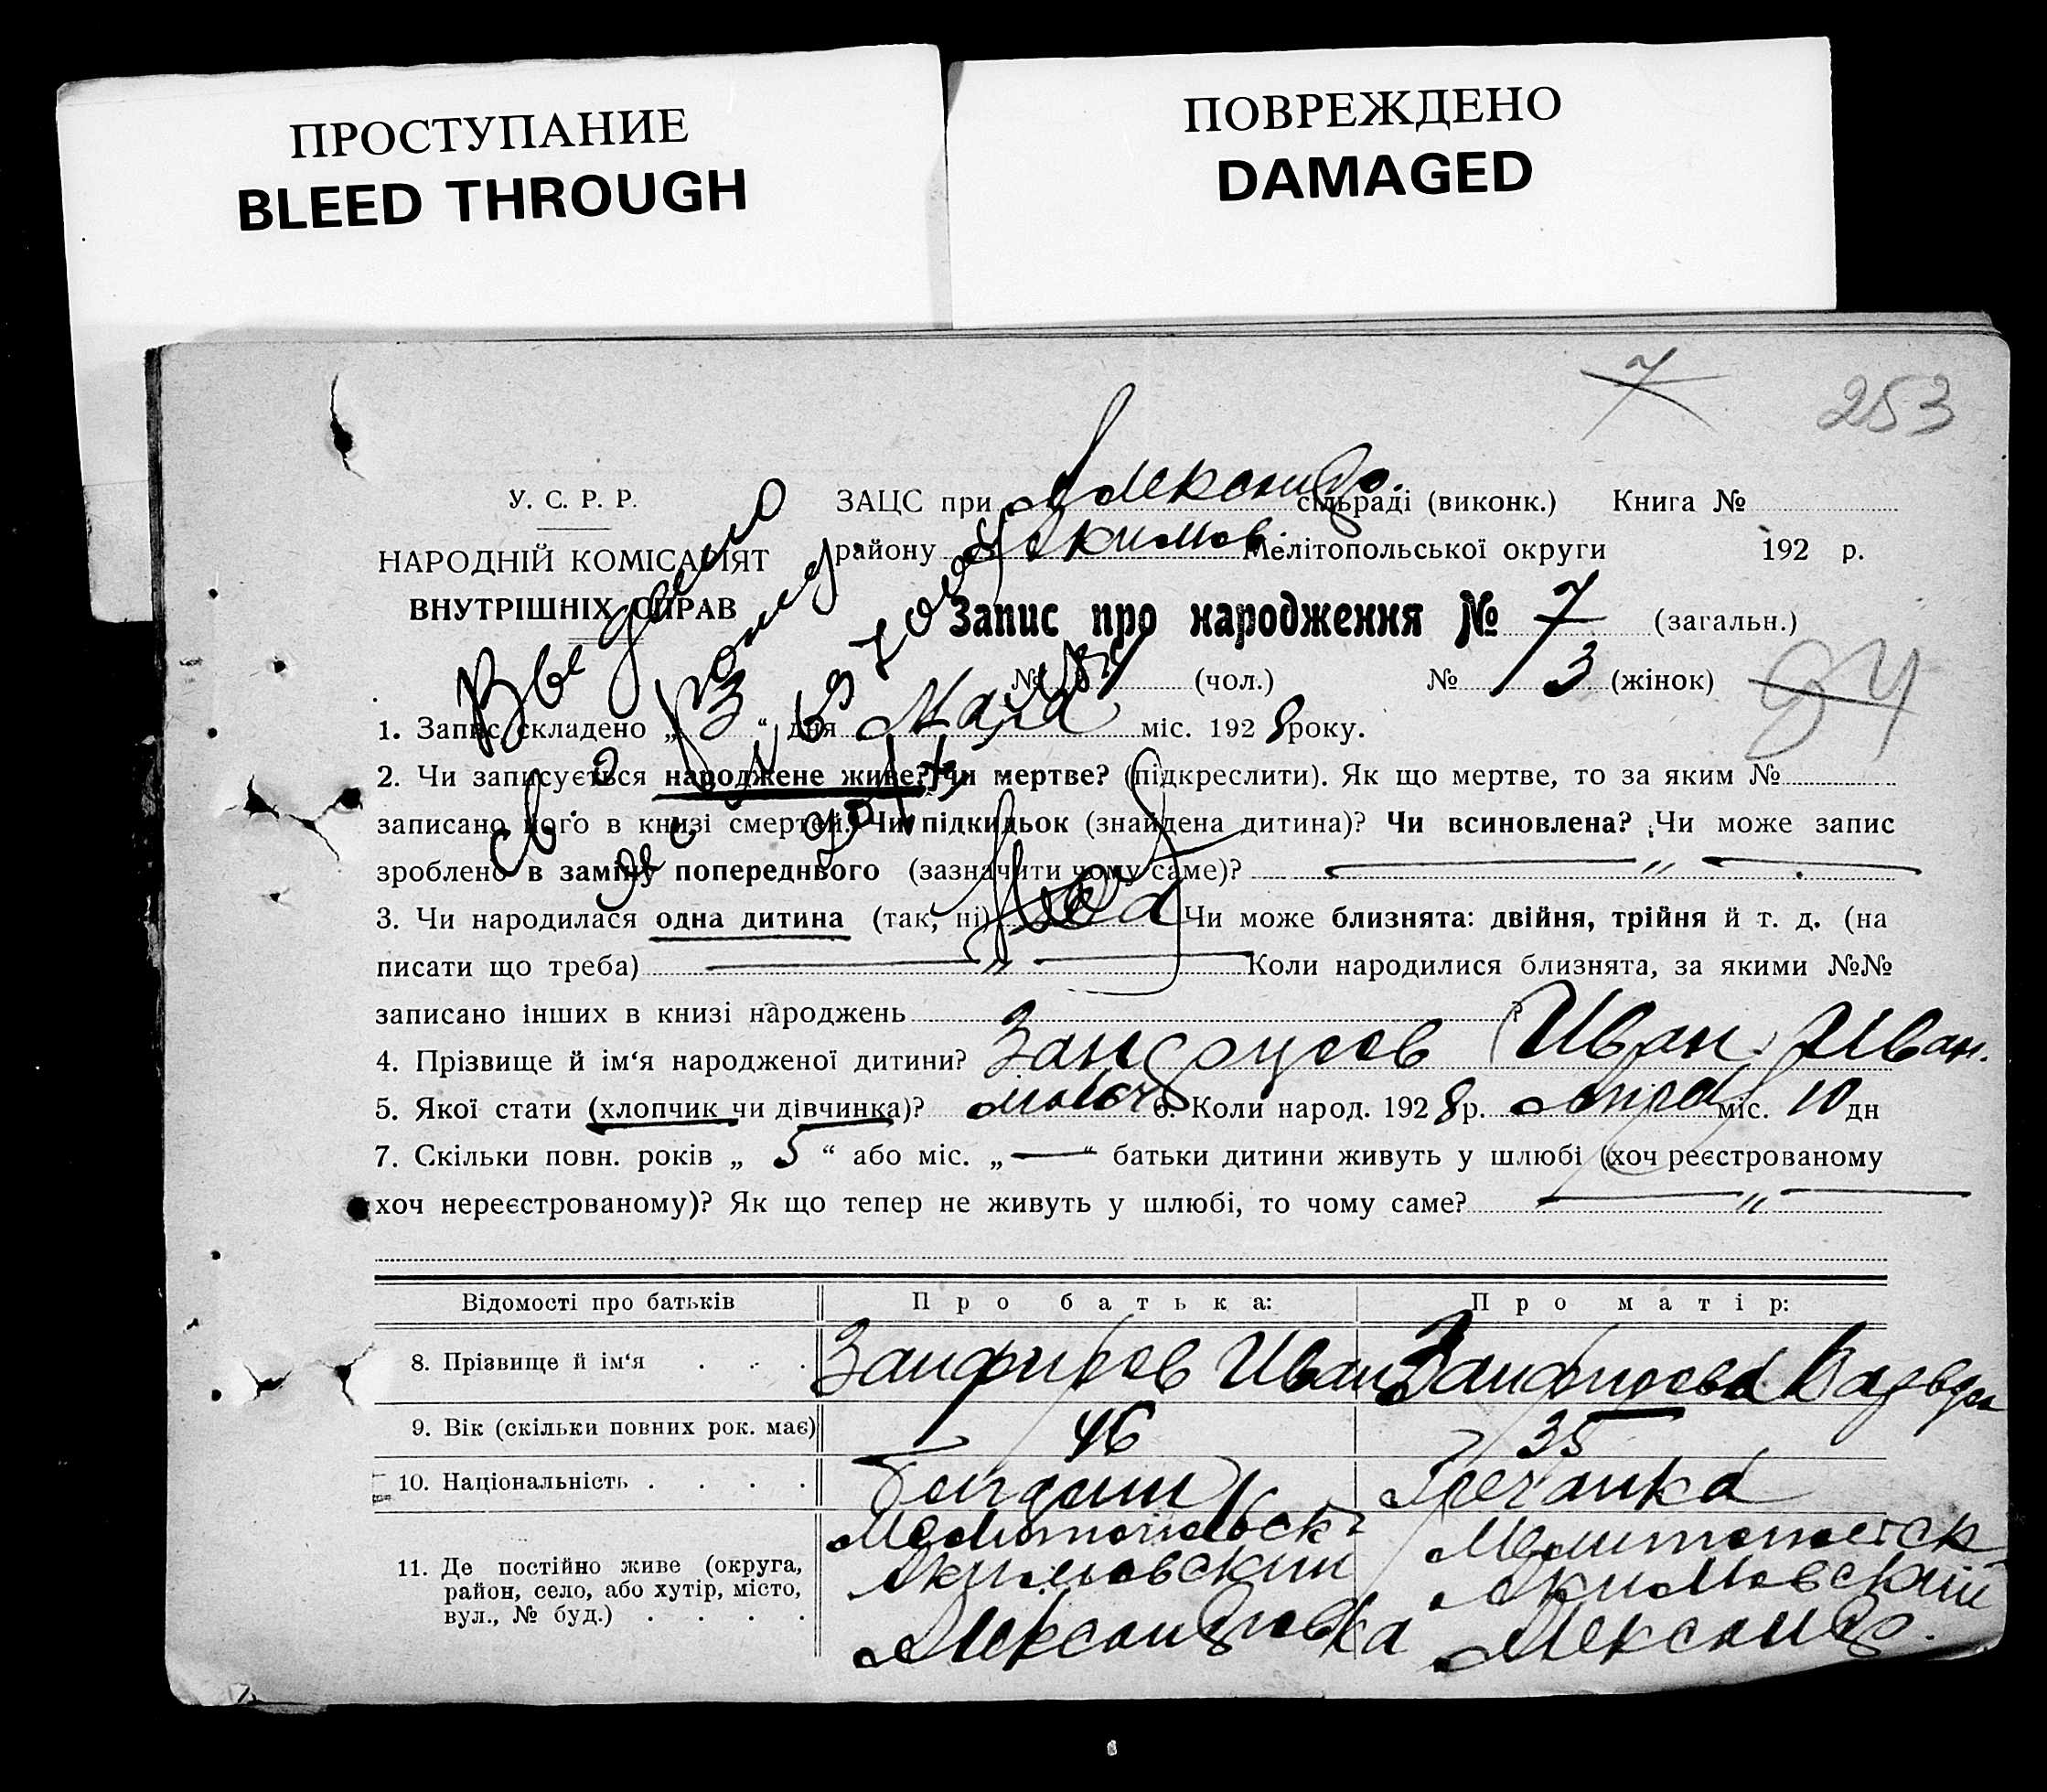 ПРОСТУПАНИЕ
BLEED THROUGH
ПОВРЕЖДЕНО
DAMAGED
7
253
У. С. Р. Р.
НАРОДНІЙ КОМІСАРІЯТ
ВНУТРІШНІХ СПРАВ
ЗАЦС при Александр. сільраді (виконк.) Книга №
району Акимов. Мелітопольської округи 192 р.
Запис про народження № 7 (загальн.)
№ (чол.) № 3 (жінок)
84
Выдано
1. Запис складено „ 3 “ дня Мая міс. 1928 року.
2. Чи записується народжене живе? Чи мертве? (підкреслити). Як що мертве, то за яким №
записано його в книзі смертей. Чи підкидьок (знайдена дитина)? Чи всиновлена? Чи може запис
зроблено в заміну попереднього (зазначити чому саме)? — „ —
3. Чи народилася одна дитина (так, ні) Чи може близнята: двійня, трійня й т. д. (на
писати що треба) — „ — Коли народилися близнята, за якими №№
записано інших в книзі народжень ?
4. Прізвище й ім‘я народженої дитини? Иван Иван.
5. Якої стати (хлопчик чи дівчинка)? 6. Коли народ. 1928 р. міс. 10 дн
7. Скільки повн. років „ 5 “ або міс. „ — “ батьки дитини живуть у шлюбі (хоч реєстрованому
хоч нереєстрованому)? Як що тепер не живуть у шлюбі, то чому саме? — „ —
Відомості про батьків Про батька: Про матір:
8. Прізвище й ім‘я . . . Занфиров Иван Занфирова Варвара
9. Вік (скільки повних рок. має) 46 35
10. Національність . . . . Гречанка
11. Де постійно живе (округа, район, село, або хутір, місто, вул., № буд.) . . . .
Мелитопольск Мелитопольск
Акимовский Акимовский
Александровка Александр.